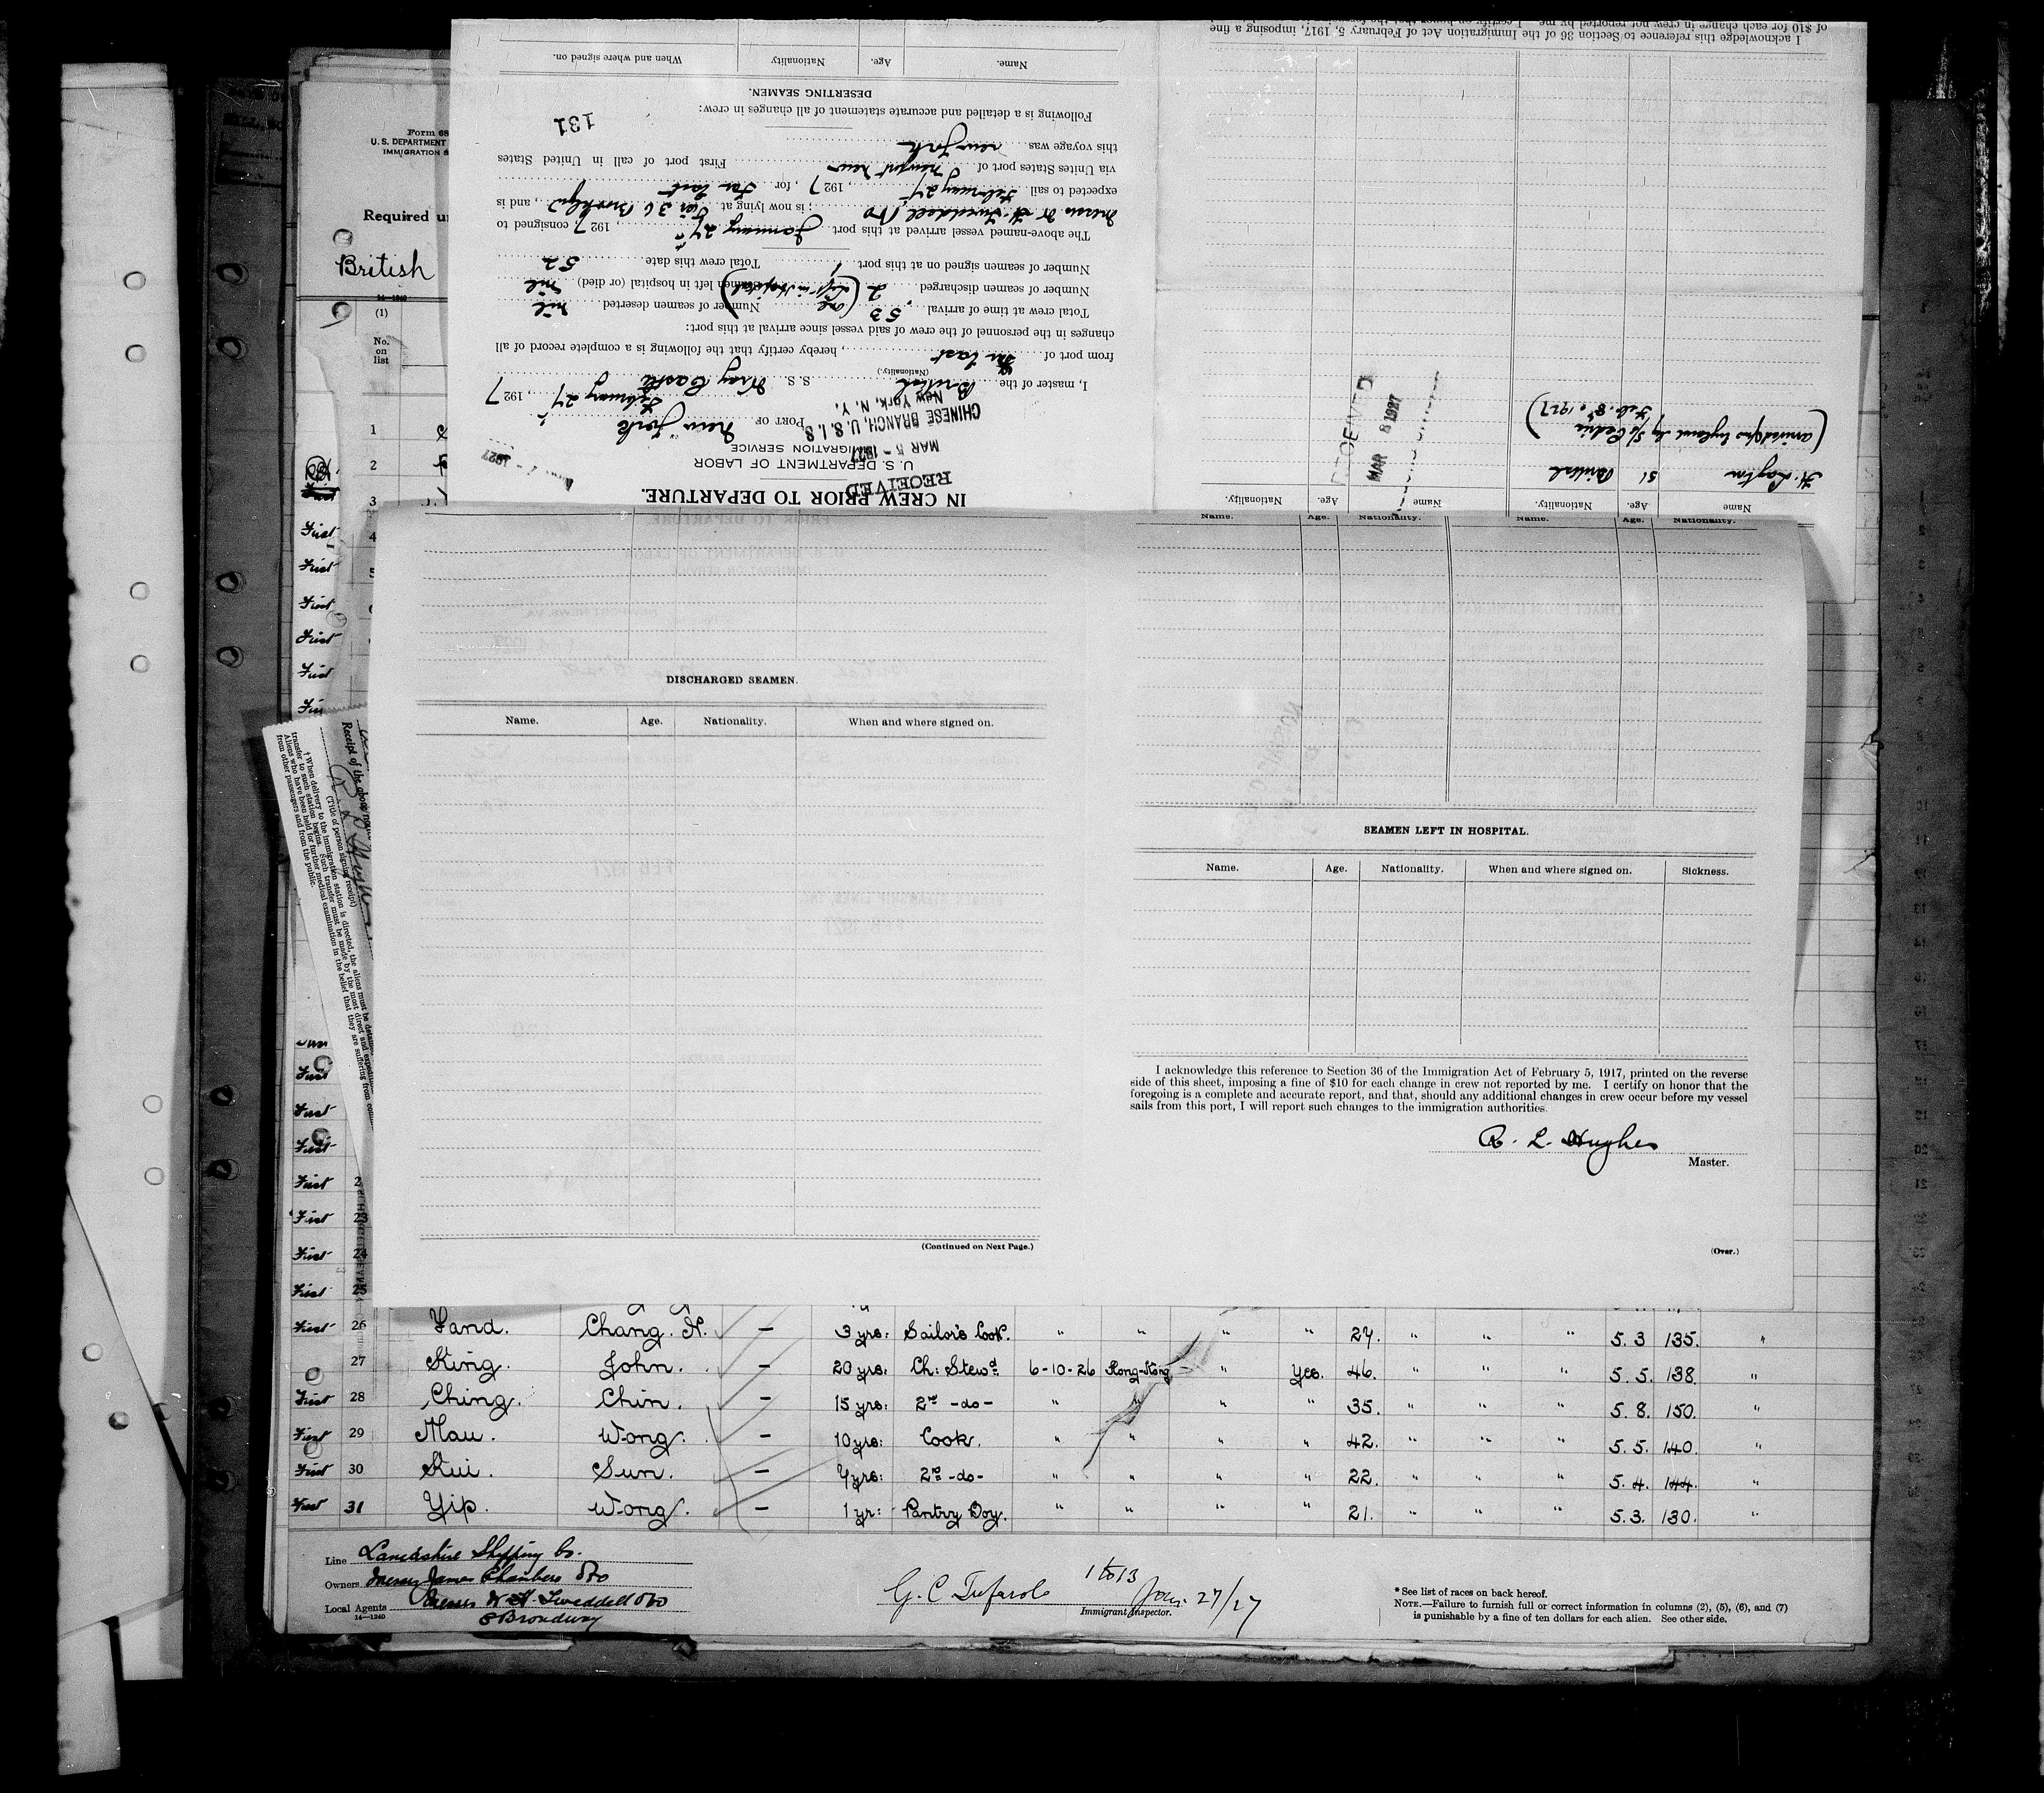 of $10 for each change in crew not reported by me. I certify on honor that the
I acknowledge this reference to Section 36 of the Immigration Act of February 5, 1917, imposing a fine
Form 68
U. S. DEPARTMENT
IMMIGRATION S
Required u
British
14-1240
(1)
No.
on
list
1
2
3
4
5
IN CREW PRIOR TO DEPARTURE.
RECEIVED
U. S. DEPARTMENT OF LABOR
MAR 5 - 1927
IMMIGRATION SERVICE
CHINESE BRANCH, U. S. I. S.
New York, N. Y.
PORT OF New York
February 24, 1927
I, master of the British S. S. Kray Castle
(Nationality.)
from port of Far East, hereby certify that the following is a complete record of all
changes in the personnel of the crew of said vessel since arrival at this port:
Total crew at time of arrival 53 Number of seamen deserted nil
Number of seamen discharged 2 (one left in Hospital) Seamen left in hospital (or died) nil
Number of seamen signed on at this port 1 Total crew this date 52
The above-named vessel arrived at this port January 27, 1927 consigned to
Messrs W. H. Tweddell & Co ; is now lying at Pier 36 Brooklyn, and is
expected to sail February 24, 1927, for Far East
via Unites States port of Newport News First port of call in United States
this voyage was New York
131
Following is a detailed and accurate statement of all changes in crew:
DESERTING SEAMEN.
Name. Age. Nationality When and where signed on.
Name Age. Nationality. Name Age. Nationality.
H. Layton 51 British
(arrived from England by S/S Cedric
Feb. 8th, 1927)
MAR 8 1927
Name. Age. Nationality. Name. Age. Nationality.
DISCHARGED SEAMEN.
Name. Age. Nationality. When and where signed on.
(Continued on Next Page.)
SEAMEN LEFT IN HOSPITAL.
Name. Age. Nationality. When and where signed on. Sickness.
I acknowledge this reference to Section 36 of the Immigration Act of February 5, 1917, printed on the reverse
side of this sheet, imposing a fine of $10 for each change in crew not reported by me. I certify on honor that the
foregoing is a complete and accurate report, and that, should any additional changes in crew occur before my vessel
sails from this port, I will report such changes to the immigration authorities.
R. L. Hughes
Master.
(Over.)
Receipt of the above
(Title of person signing receipt)
† When delivery to the immigration station is directed, the aliens must be detained
transfer to such station begins. Such transfer must be made by the most direct and
Aliens who have been held for further medical examination in the belief that they are suffering from
from other passengers and from the public.
First
First
First
First
First
First
First
First
First
First 23
First 24
First 25
First 26 Yand. Chang. N. — 3 yrs: Sailor's Cook. " " " " 27. " " " 5. 3 135. "
27 King. John. — 20 yrs: Ch: Stewd 6-10-26 Hong-Kong " Yes. 46. " " " 5. 5. 138. "
First 28 Ching. Chin. — 15 yrs: 2nd -do- " " " " 35. " " " 5. 8. 150. "
First 29 Mau. Wong. — 10 yrs: Cook. " " " " 42. " " " 5. 5. 140. "
First 30 Kui. Sun. — 4 yrs: 2nd -do- " " " " 22. " " " 5. 4. 144. "
First 31 Yip. Wong. — 1 yr: Pantry Boy. " " " " 21. " " " 5. 3. 130. "
Line Lancashire Shipping Co.
Owners Messrs James Chambers & Co
Local Agents Messrs W. H. Tweddell & Co
14-1240
8 Broadway
1 to 13
Jan. 27/27
Immigrant Inspector.
* See list of races on back hereof.
NOTE.—Failure to furnish full or correct information in columns (2), (5), (6), and (7)
is punishable by a fine of ten dollars for each alien. See other side.